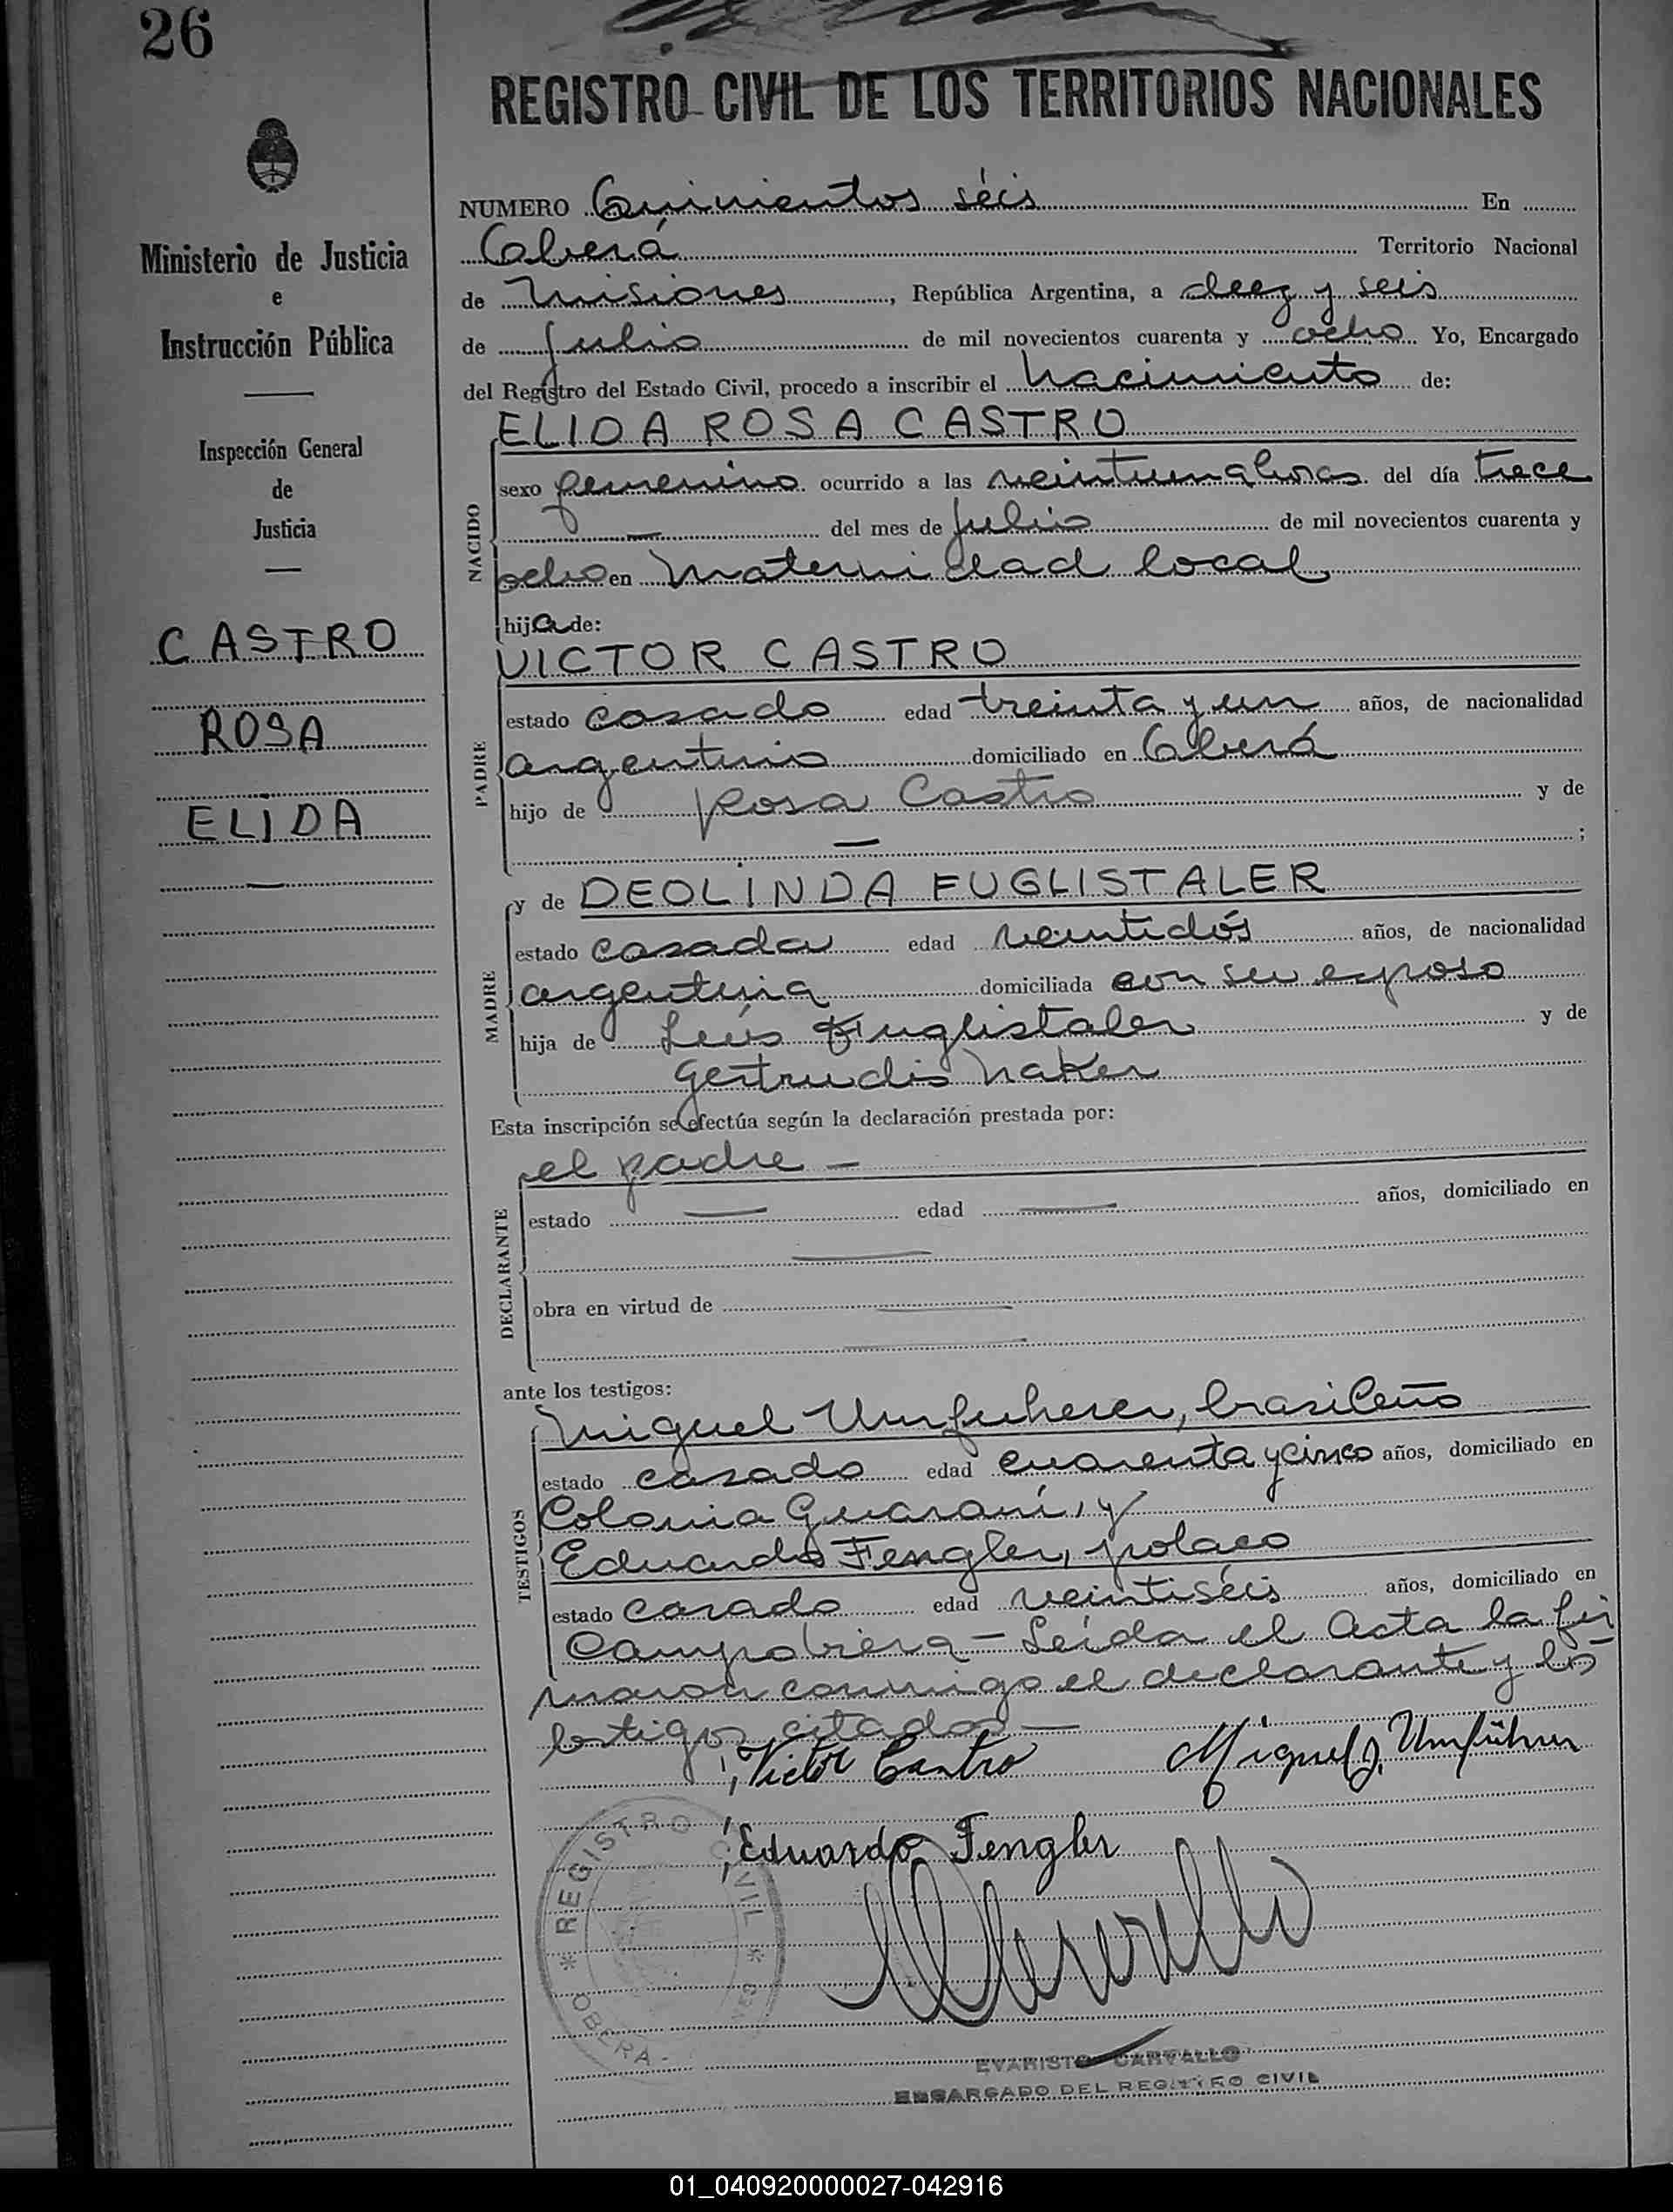 26
REGISTRO CIVIL DE LOS TERRITORIOS NACIONALES
Ministerio de Justicia
e
Instrucción Pública
Inspección General
de
Justicia
CASTRO
ROSA
ELIDA
NUMERO Quinientos séis En
Oberá Territorio Nacional
de Misiones, República Argentina, a diez y seis
de Julio de mil novecientos cuarenta y ocho Yo, Encargado
del Registro del Estado Civil, procedo a inscribir el Nacimiento de:
NACIDO
ELIDA ROSA CASTRO
sexo femenino ocurrido a las veintiuna horas del día trece
— del mes de Julio de mil novecientos cuarenta y
ocho en Maternidad local
hija de:
PADRE
VICTOR CASTRO
estado casado edad treinta y un años, de nacionalidad
argentino domiciliado en Oberá
hijo de Rosa Castro y de
— ;
MADRE
y de DEOLINDA FUGLISTALER
estado casada edad veintidós años, de nacionalidad
argentina domiciliada con su esposo
hija de Luis Fuglistaler y de
Gertrudis Naker
Esta inscripción se efectúa según la declaración prestada por:
DECLARANTE
el padre —
estado — edad — años, domiciliado en
—
obra en virtud de —
—
ante los testigos:
TESTIGOS
Miguel Umfuherer, brasileño
estado casado edad cuarenta y cinco años, domiciliado en
Colonia Guaraní, y
Eduardo Fengler, polaco
estado casado edad veintiséis años, domiciliado en
Campo Viera — Leída el Acta la fir
maron conmigo el declarante y los
testigos citados —
Victor Castro Miguel J. Umführer
Eduardo Fengler
REGISTRO CIVIL
OBERA
EVARISTO CARVALLO
ENCARGADO DEL REGISTRO CIVIL
01_040920000027-042916